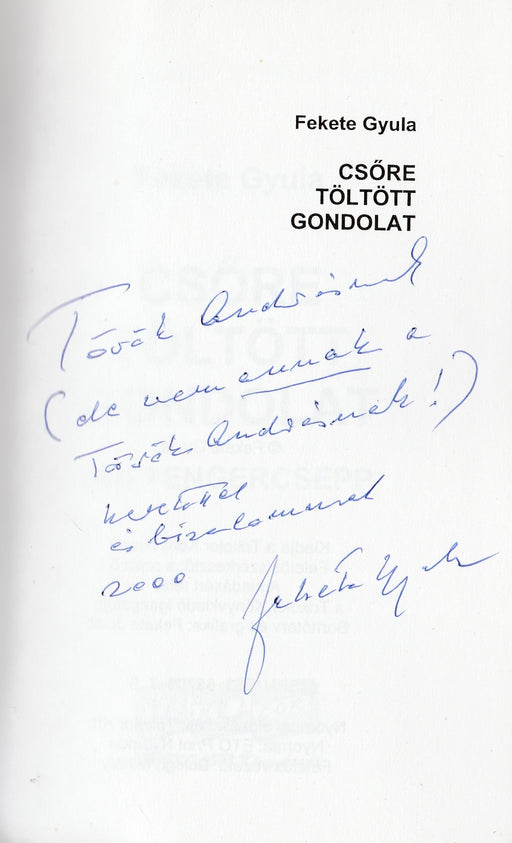 Fekete Gyula
CSŐRE
TÖLTÖTT
GONDOLAT
Török Andrásnak
(de nem annak a
Török Andrásnak!)
szeretettel
és bizalommal
2000 Fekete Gyula